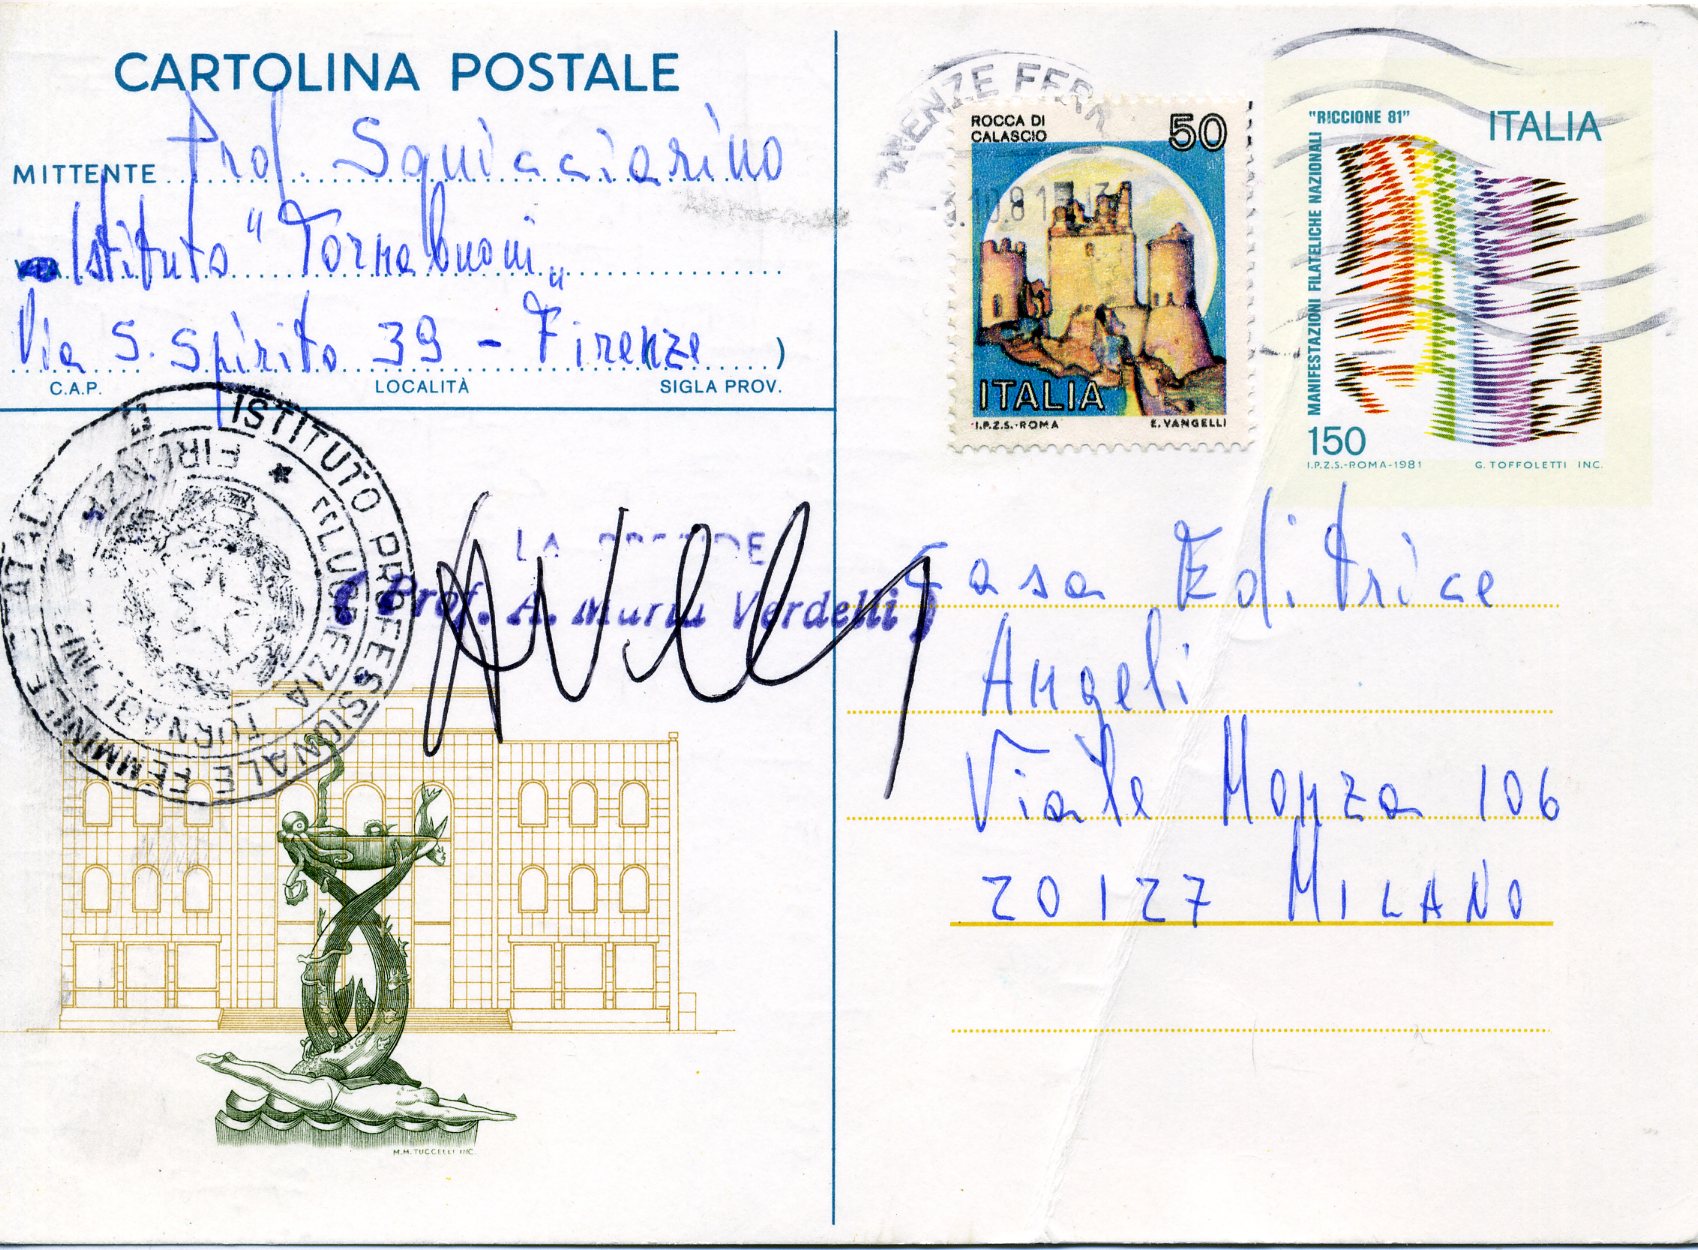 CARTOLINA POSTALE
MITTENTE Prof. Squicciarino
Istituto "Tornabuoni"
Via S. Spirito 39 - Firenze )
C.A.P. LOCALITÀ SIGLA PROV.
ISTITUTO PROFESSIONALE FEMMINILE
FIRENZE
(Prof. A. Maria Verdelli)
M.M. TUCCELLI INC.
FERR
10.81
ROCCA DI
CALASCIO
50
ITALIA
I.P.Z.S.-ROMA E. VANGELLI
"RICCIONE 81" ITALIA
MANIFESTAZIONI FILATELICHE NAZIONALI
150
I.P.Z.S.-ROMA-1981 G. TOFFOLETTI INC.
Casa Editrice
Angeli
Viale Monza 106
20127 MILANO